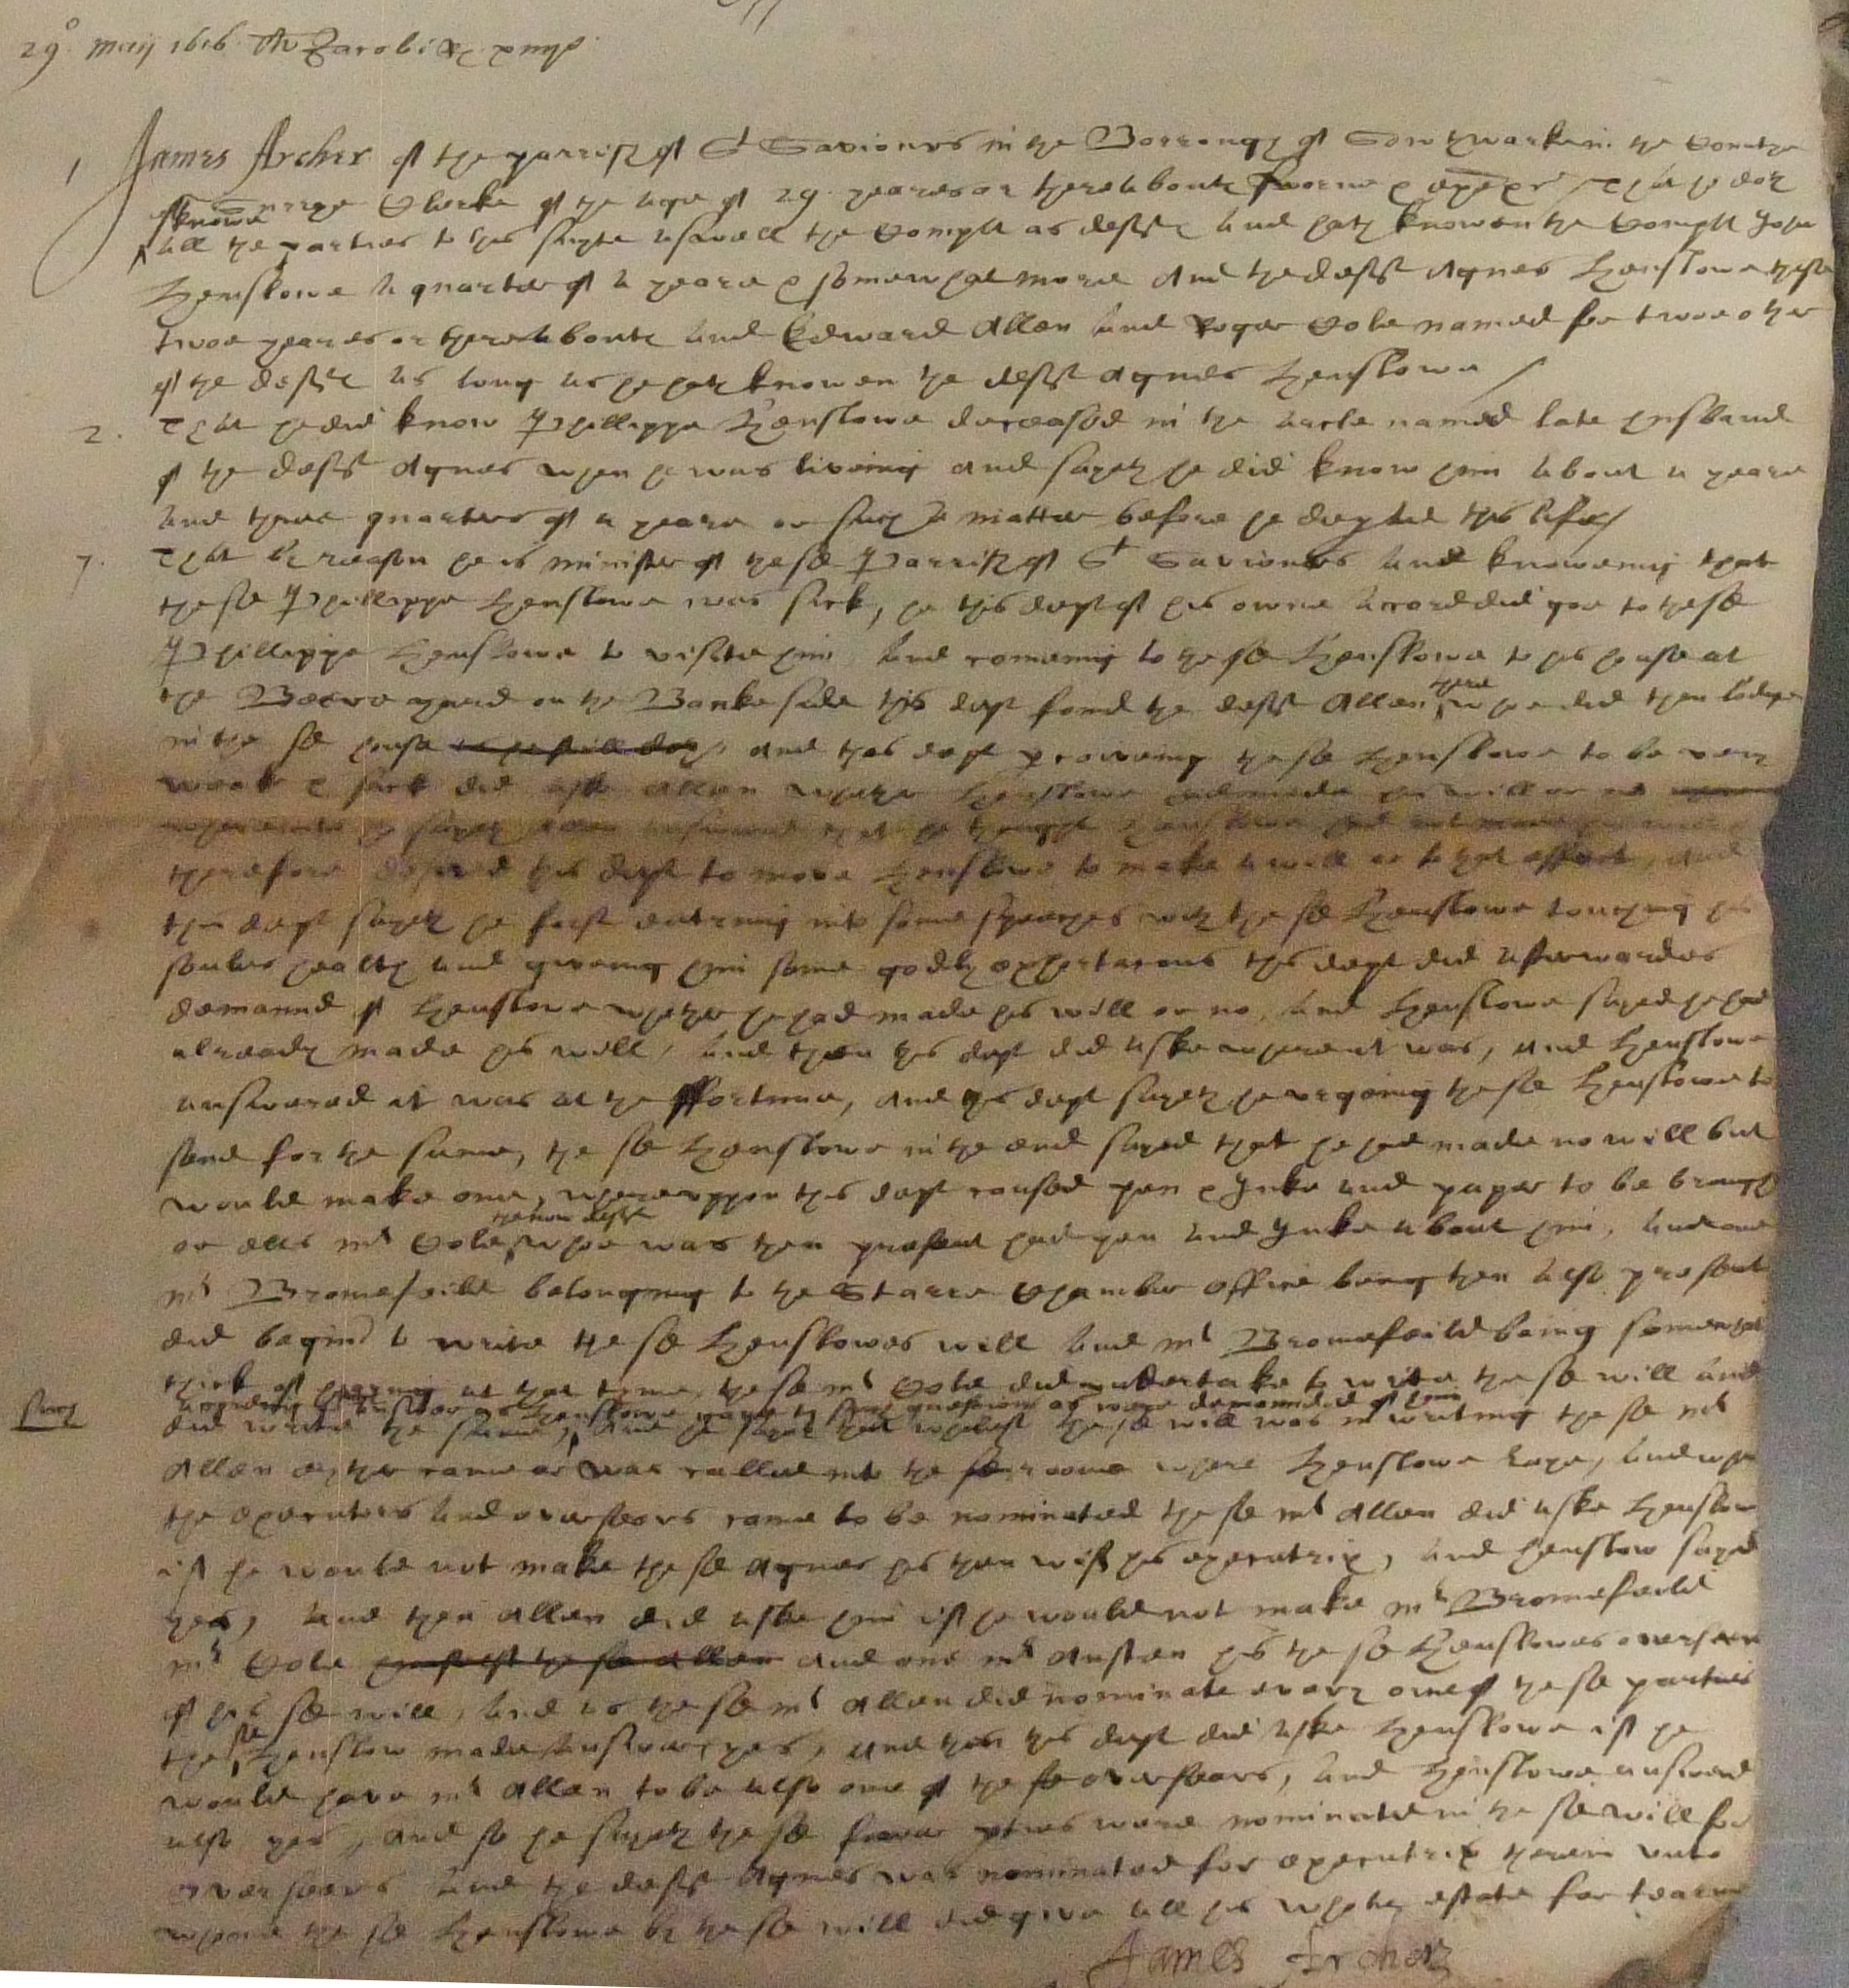 29° Maij 1616 Th Jacobi &c
1 James Archer of the parrish of St Saviours in the Borrough of Southwarke in the Countye
of Surrye Clerke of the age of 29 yeares or thereaboutes sworne & That he doth
knowe
all the parties to this suyte aswell the Complt as deftes and hath knowen the Complt John
Henslowe a quarter of a yeare & somewhat more And the deft Agnes Henslowe theis
twoe yeares or thereaboutes and Edward Allen and Roger Cole named for twoe other
of the deftes as long as he hath knowen the deft Agnes Henslowe /
2. That he did know Phillippe Henslowe deceased in the Article named late husband
of the deft Agnes when he was liveing And sayeth he did know him about a yeare
and three quarters of a yeare or such a matter before he depted this life /
7. That by reason he is minister of the sd Parrish of St Saviours and knoweing that
the sd Phillippe Henslowe was sick, he this dept of his owne accord did goe to the sd
Phillippe Henslowe to visite him And comeing to the sd Henslowe to his house at
there
the Beere yeard on the Banke side this dept fond the deft Allen whoe did then lodge
in the sd house as he still doth And this dept pceiveing the sd Henslowe to be very
weake & sick did aske Allen whether Henslowe had made his will or no
he sayeth Allen answered that he thought Henslowe had not made his will
therefore desired this dept to move Henslowe to make a will or to that effect, And
this dept sayeth he first entring into some speeches with the sd Henslowe touching his
soules healthe and giveing him some godly exhortacons this dept did afterwardes
demannd of Henslowe whether he had made his will or no, and Henslowe sayed he had
already made his will, and then this dept did aske where it was, and Henslowe
answered it was at the ffortune, And this dept sayeth he urgeing the sd Henslowe to
send for the same, the sd Henslowe in the end sayed that he had made no will but
would make one, whereuppon this dept caused pen & Inke and paper to be brought
the now deft
or ells Mr Cole whoe was then present had pen and Inke about him, and one
Mr Bromefeild belonging to the Starre Chamber office being then also present
did begind to write the sd Henslowes will and Mr Bromefeild being somewhat
thick of hearing at that time, the sd Mr Cole did undertake to write the sd will and
according to answer as Henslowe gave to such questions as were demannded of him
such did write the same, And he sayeth that whilest the sd will was in writing the sd Mr
Allen eyther came or was called into the sd roome where Henslowe laye, and when
the executors and overseers came to be nominated the sd Mr Allen did aske Henslow
if he would not make the sd Agnes his then wife his executrix, and Henslow sayed
yea, and then Allen did aske him if he would not make Mr Bromefeild
Mr Cole himself the sd Allen And one Mr Austen his the sd Henslowes overseers
of his sd will, and as the sd Mr Allen did nominate every one of the sd parties
sd
the Henslow made answer yea, And then this dept did aske Henslowe if he
would have Mr Allen to be also one of the sd overseers, and Henslowe answered
also yea, And so he sayeth the sd fower pties were nominated in the sd will for
overseers and the deft Agnes was nominated for executrix therein unto
whome the sd Henslowe by the sd will did give all his whole estate for tearme
James Archer